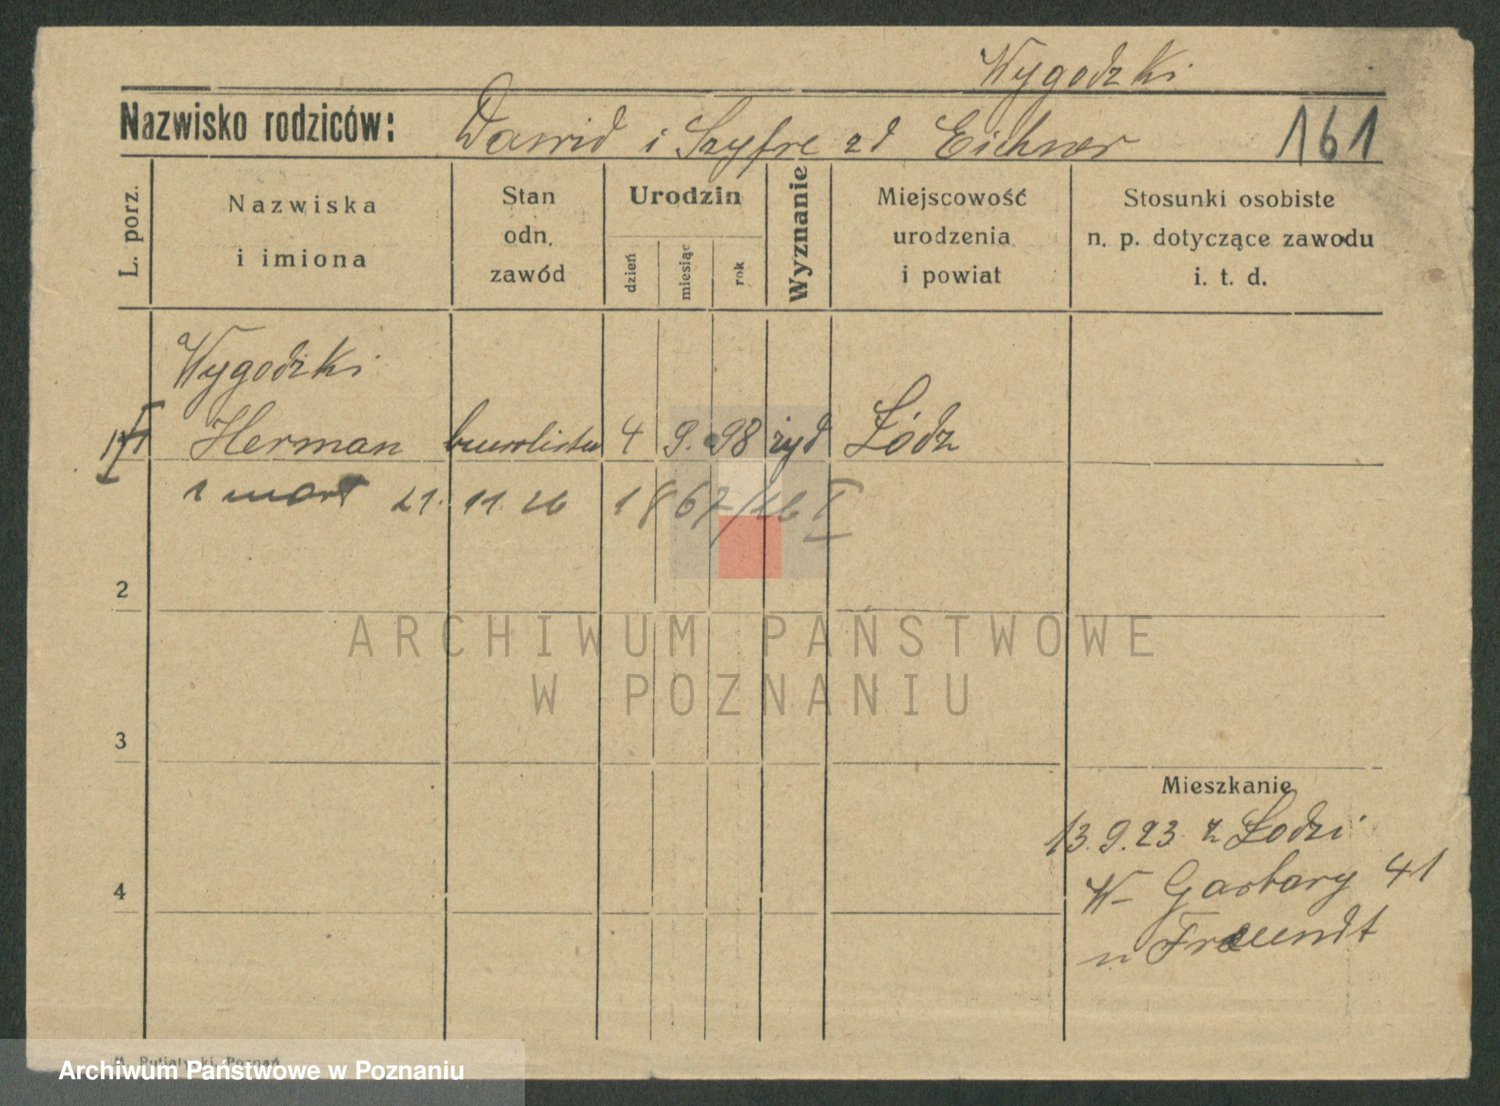 Wygodzki
Nazwisko rodziców: Dawid i Szyfre zd Eichner 161
L. porz.
Nazwiska i imiona
Stan odn. zawód
Urodzin
dzień miesiąc rok
Wyznanie
Miejscowość urodzenia i powiat
Stosunki osobiste n. p. dotyczące zawodu i. t. d.
Wygodzki
Herman biuralista 4 9. 98 żyd Łódz
zmarł 21. 11. 26 1867/26 I
2
ARCHIWUM PAŃSTWOWE
W POZNANIU
3
Mieszkanie
13.9.23 z Łodzi
W- Garbary 41
u Freundt
4
M. Putiatycki, Poznań
Archiwum Państwowe w Poznaniu